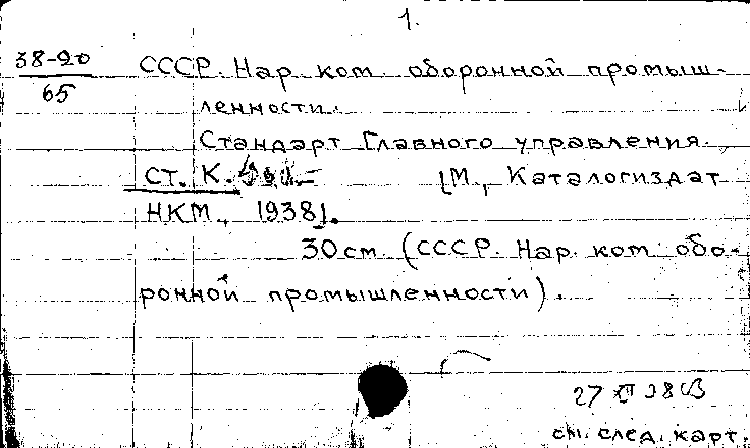 1.
38-20
65
СССР. Нар. ком. оборонной промыш-
ленности.
Стандарт Главного управления.
Ст. К. [М., Каталогиздат
НКМ., 1938].
30 см (СССР. Нар. ком. обо-
ронной промышленности).
27 XII 38
см. след. карт.